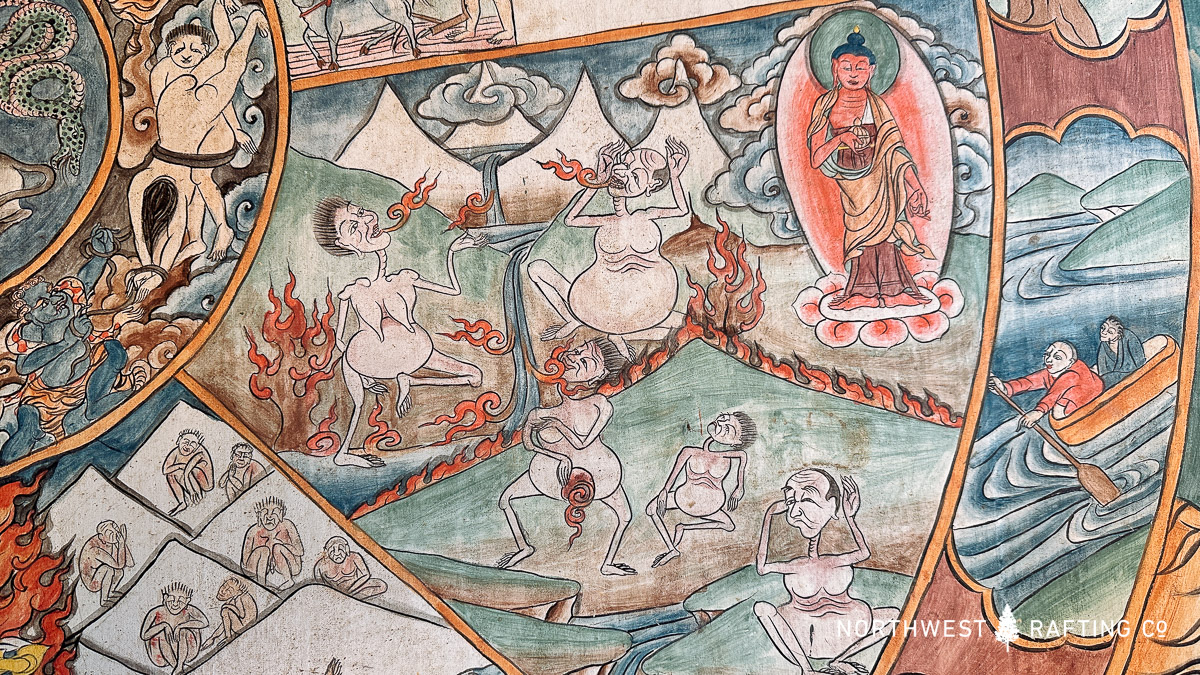 NORTHWEST RAFTING CO